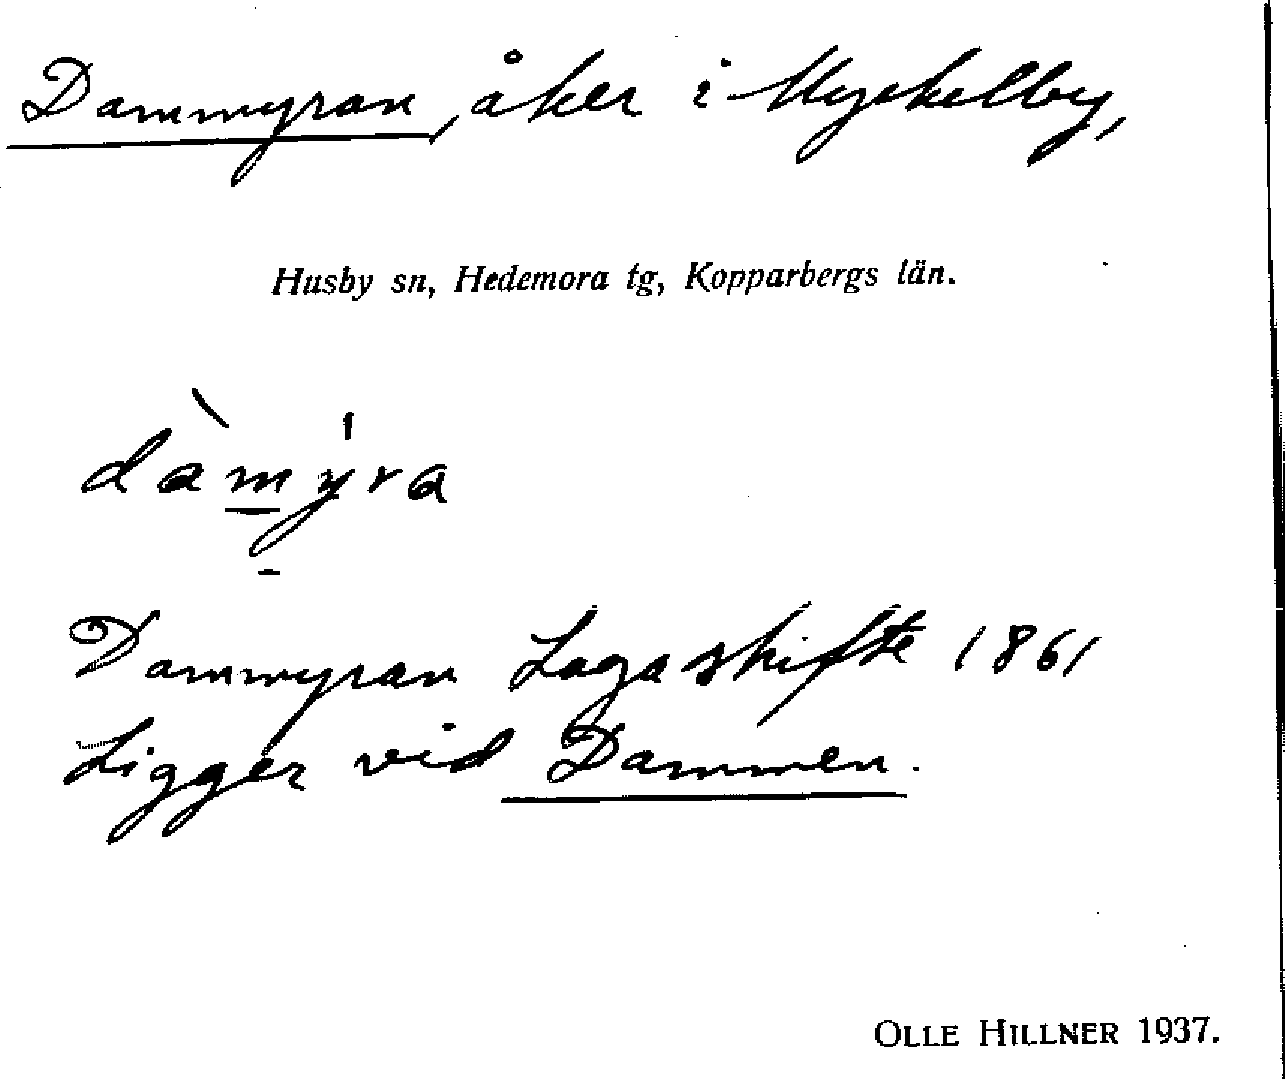 Dammyran, åker i Myckelby,
Husby sn, Hedemora tg, Kopparbergs län.
dàmy̱ra
Dammyran Laga skifte 1861
Ligger vid Dammen.
OLLE HILLNER 1937.